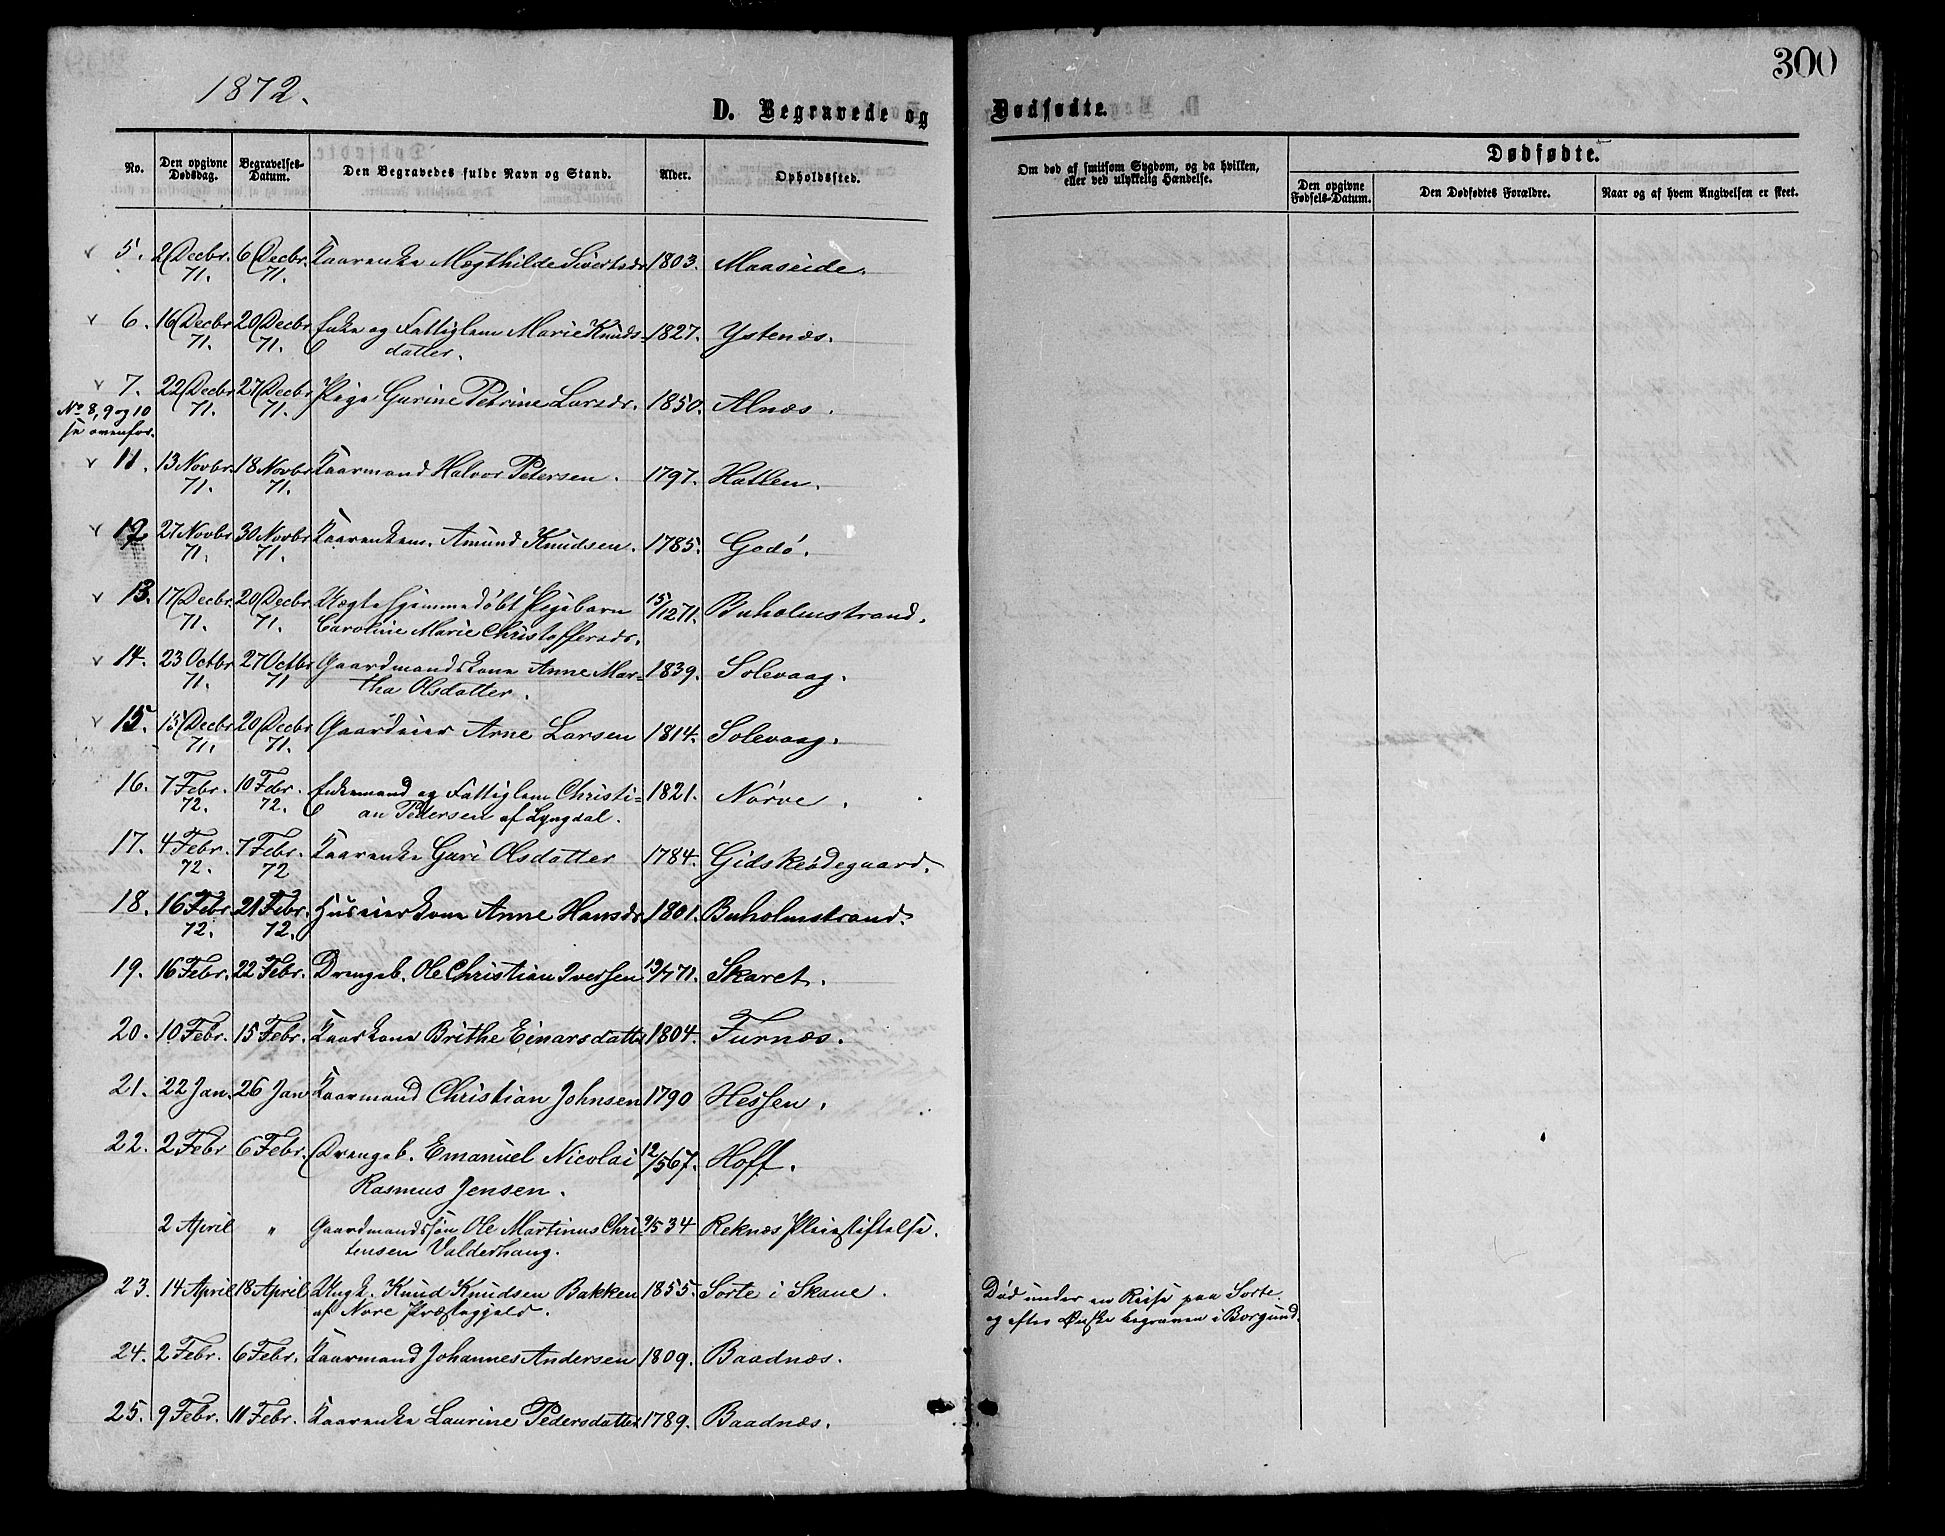 300
1872.
D. Begravede og Dødfødte.
No.
Den opgivne Dødsdag.
Begravelses-Datum.
Den Begravedes fulde Navn og Stand.
Alder.
Opholdssted.
Om død af smitsom Sygdom, og da hvilken, eller ved ulykkelig Hændelse.
Dødfødte.
Den opgivne Fødsels-Datum.
Den Dødfødtes Forældre.
Naar og af hvem Angivelsen er skeet.
5. 2 Decbr. 71. 6 Decbr. 71. Kaarenke Mægthilde Sivertsdr 1803. Maaseide.
6. 16 Decbr 71. 20 Decbr. 71. Enke og Fattiglem Marie Knuds- 1827. Ystenæs.
datter.
7. 22 Decbr 71. 27 Decbr 71. Pige Gurine Petrine Larsdr. 1850. Alnæs.
No 8, 9 og 10
se ovenfor.
11. 13 Novbr. 71. 18 Novbr 71. Kaarmand Halvor Petersen. 1797. Hatlen.
12 27 Novbr 71. 30 Novbr 71. Kaarenkem. Amund Knudsen. 1785. Godø.
13. 17 Decbr. 71. 20 Decbr 71. Ægte hjemmedøbt Pigebarn 15/12 71. Buholmstrand.
Caroline Marie Christoffersdr.
14. 23 Octbr 71. 27 Octbr 71 Gaardmandskone Anne Mar- 1839. Solevaag.
tha Olsdatter.
15. 15 Decbr 71. 20 Decbr 71. Gaardeier Arne Larsen 1814. Solevaag.
16. 7 Febr. 72. 10 Febr. 72. Enkemand og Fattiglem Christi- 1821. Nørve.
an Pedersen af Lyngdal.
17. 4 Febr. 72. 7 Febr. 72 Kaarenke Guri Olsdatter 1784. Gidskeødegaard.
18. 16 Febr 72. 21 Febr. 72. Huseierkone Anne Hansdr 1801. Buholmstrand.
19. 16 Febr. 22 Febr. Drengeb. Ole Christian Iversen 19/7 71. Skaret.
20. 10 Febr. 15 Febr. Kaarkone Brithe Einarsdatter 1804. Furnæs.
21. 22 Jan. 26 Jan Kaarmand Christian Johnsen 1790 Hessen.
22. 2 Febr 6 Febr. Drengeb. Emanuel Nicolai 12/5 67. Hoff.
Rasmus Jensen.
2 April " Gaardmandssøn Ole Martinus Chri- 9/5 34 Reknæs Pleiestiftelse.
stensen Valderhaug.
23. 14 April 18 April Ungk. Knud Knudsen Bakken 1855. Sorte i Skaue. Død under en Reise paa Sorte
af Nore Præstegjeld. og efter Ønske begraven i Borgund.
24. 2 Febr. 6 Febr. Kaarmand Johannes Andersen 1809. Baadnæs.
25. 9 Febr. 11 Febr. Kaarenke Laurine Pedersdatter 1789. Baadnæs.